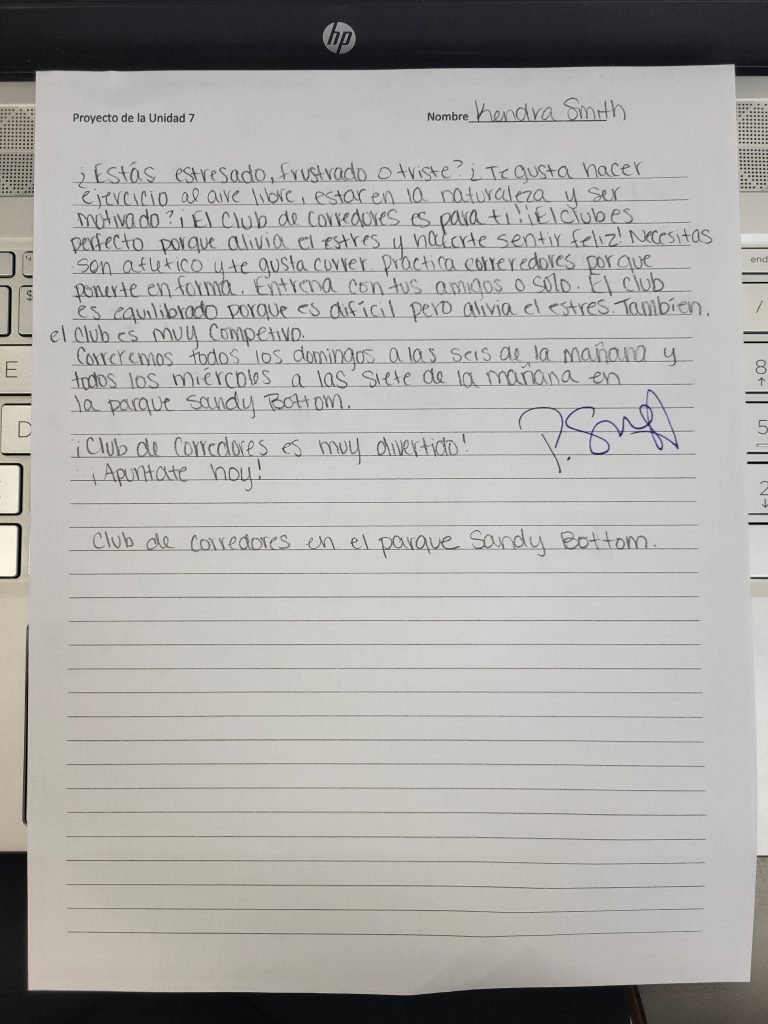 hp
Proyecto de la Unidad 7
Nombre Kendra Smith
¿Estás estresado, frustrado o triste? ¿Te gusta hacer
ejercicio al aire libre, estar en la naturaleza y ser
motivado? ¡El Club de corredores es para ti! ¡El club es
perfecto porque alivia el estres y hacerte sentir feliz! Necesitas
son atlético y te gusta correr. Practica correredores porque
ponerte en forma. Entrena con tus amigos o solo. El club
es equilibrado porque es difícil pero alivia el estres. También,
el club es muy competivo.
Correremos todos los domingos a las seis de la mañana y
todos los miércoles a las siete de la mañana en
la parque Sandy Bottom.
¡Club de corredores es muy divertido!
¡Apuntate hoy!
Club de corredores en el parque Sandy Bottom.
E
D
$
end
/
8
5
2